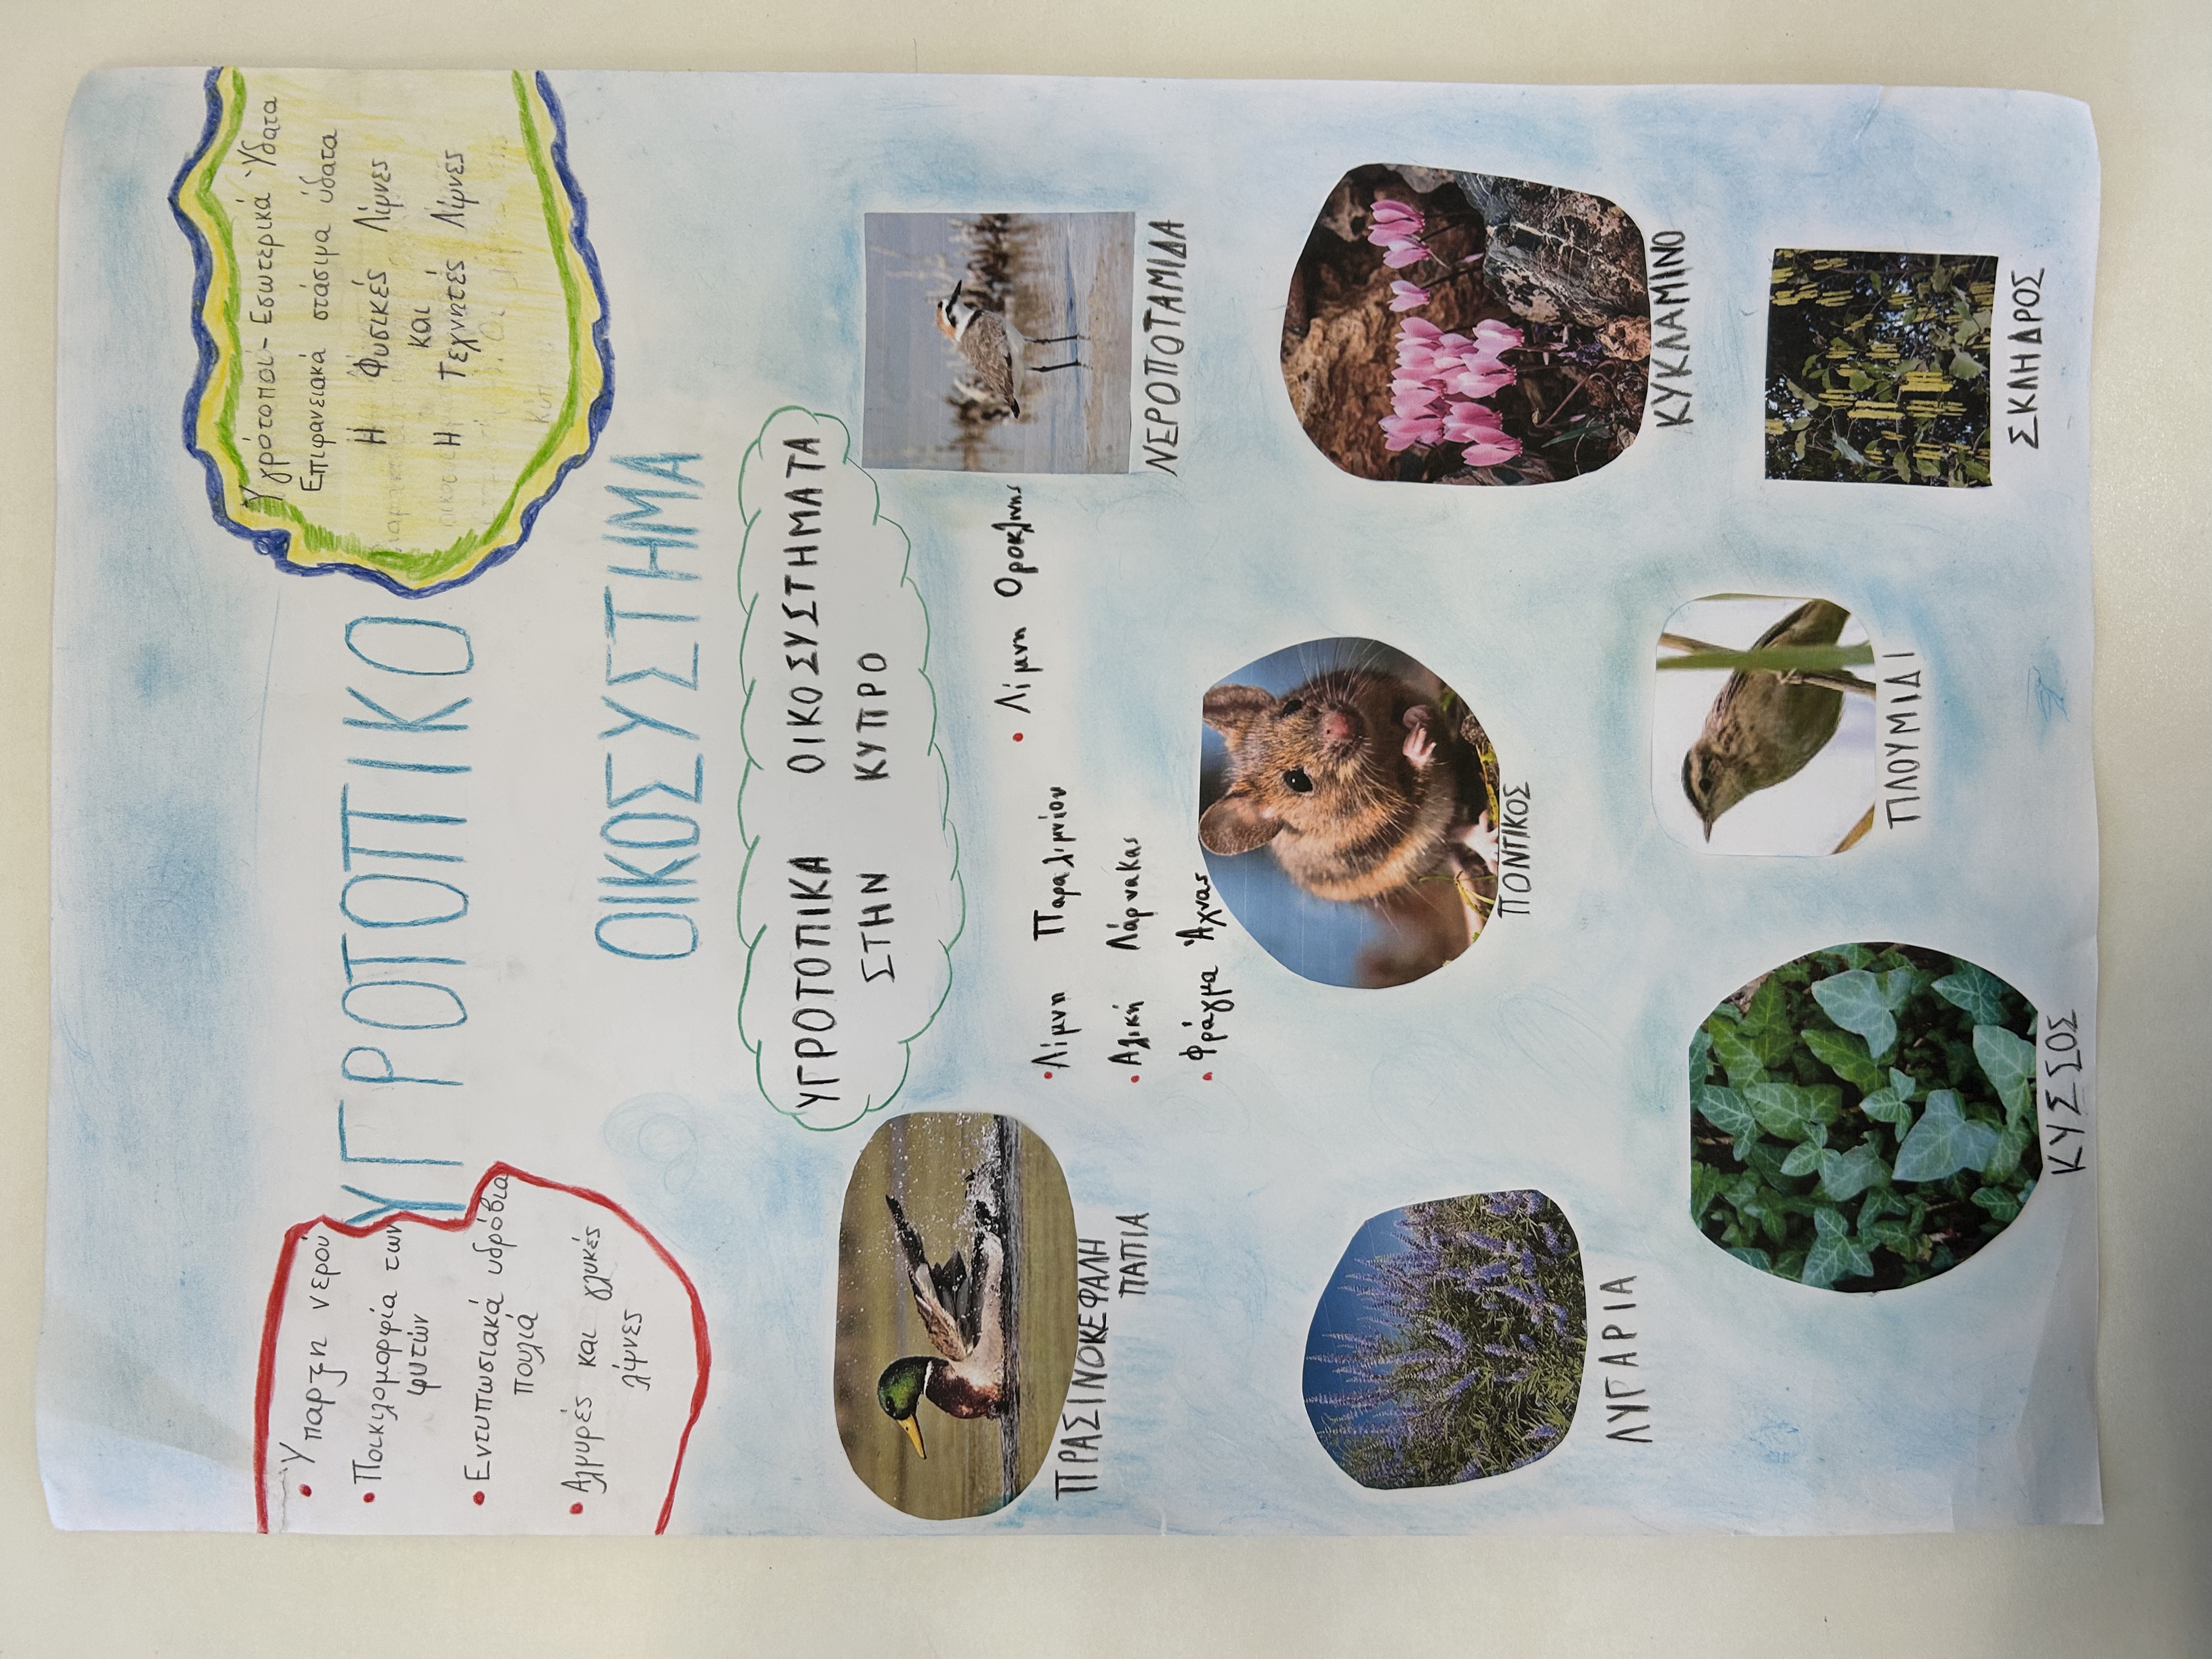 • Ύπαρξη νερού
• Ποικιλομορφία των
φυτών
• Εντυπωσιακά υδρόβια
πουλιά
• Αλμυρές και γλυκές
λίμνες
ΥΓΡΟΤΟΠΙΚΟ
ΟΙΚΟΣΥΣΤΗΜΑ
Υγρότοποι- Εσωτερικά Ύδατα
Επιφανειακά στάσιμα ύδατα
Η Φυσικές Λίμνες
και
Η Τεχνητές Λίμνες
ΥΓΡΟΤΟΠΙΚΑ ΟΙΚΟΣΥΣΤΗΜΑΤΑ
ΣΤΗΝ ΚΥΠΡΟ
• Λίμνη Παραλιμνίου
• Αλική Λάρνακας
• Φράγμα Άχνας
• Λίμνη Ορόκλινης
ΠΡΑΣΙΝΟΚΕΦΑΛΗ
ΠΑΠΙΑ
ΝΕΡΟΠΟΤΑΜΙΔΑ
ΠΟΝΤΙΚΟΣ
ΛΥΓΑΡΙΑ
ΚΥΚΛΑΜΙΝΟ
ΠΛΟΥΜΙΔΙ
ΚΥΣΣΟΣ
ΣΚΛΗΔΡΟΣ